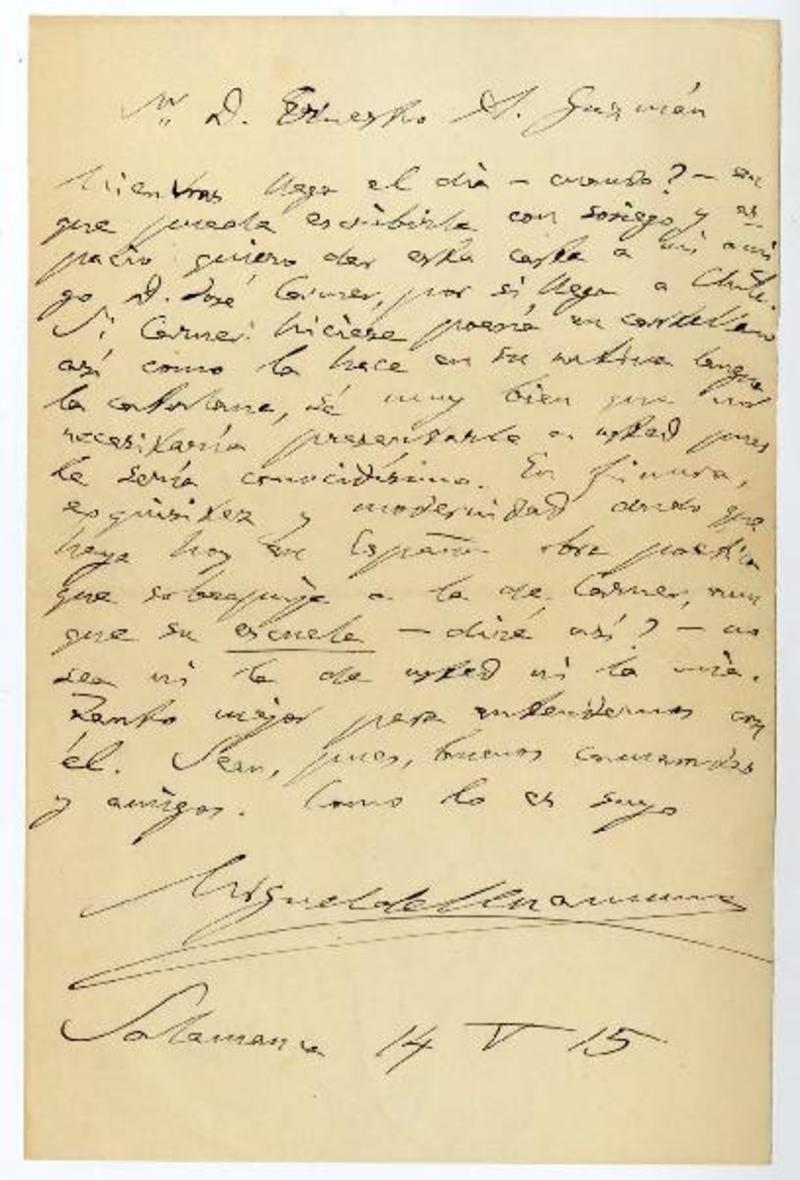 Sr. D. Ernesto A. Guzmán
Mientras llega el día - cuando? - en
que pueda escribirle con sosiego y es-
pacio quiero dar esta carta a mi ami
go D. José Carner, por si llega a Chile.
Si Carner hiciese poesía en castellano
así como la hace en su nativa lengua
la catalana, sé muy bien que no
necesitaría presentarle a usted pues
le sería conocidísimo. En finura,
exquisitez y modernidad dudo que
haya hoy en España obra poética
que sobrepuje a la de Carner, aun
que su escuela - diré así? - no
sea ni la de usted ni la mía.
Tanto mejor para entendernos con
él. Sean, pues, buenos camaradas
y amigos. Como lo es suyo
Miguel de Unamuno
Salamanca 14 V 15